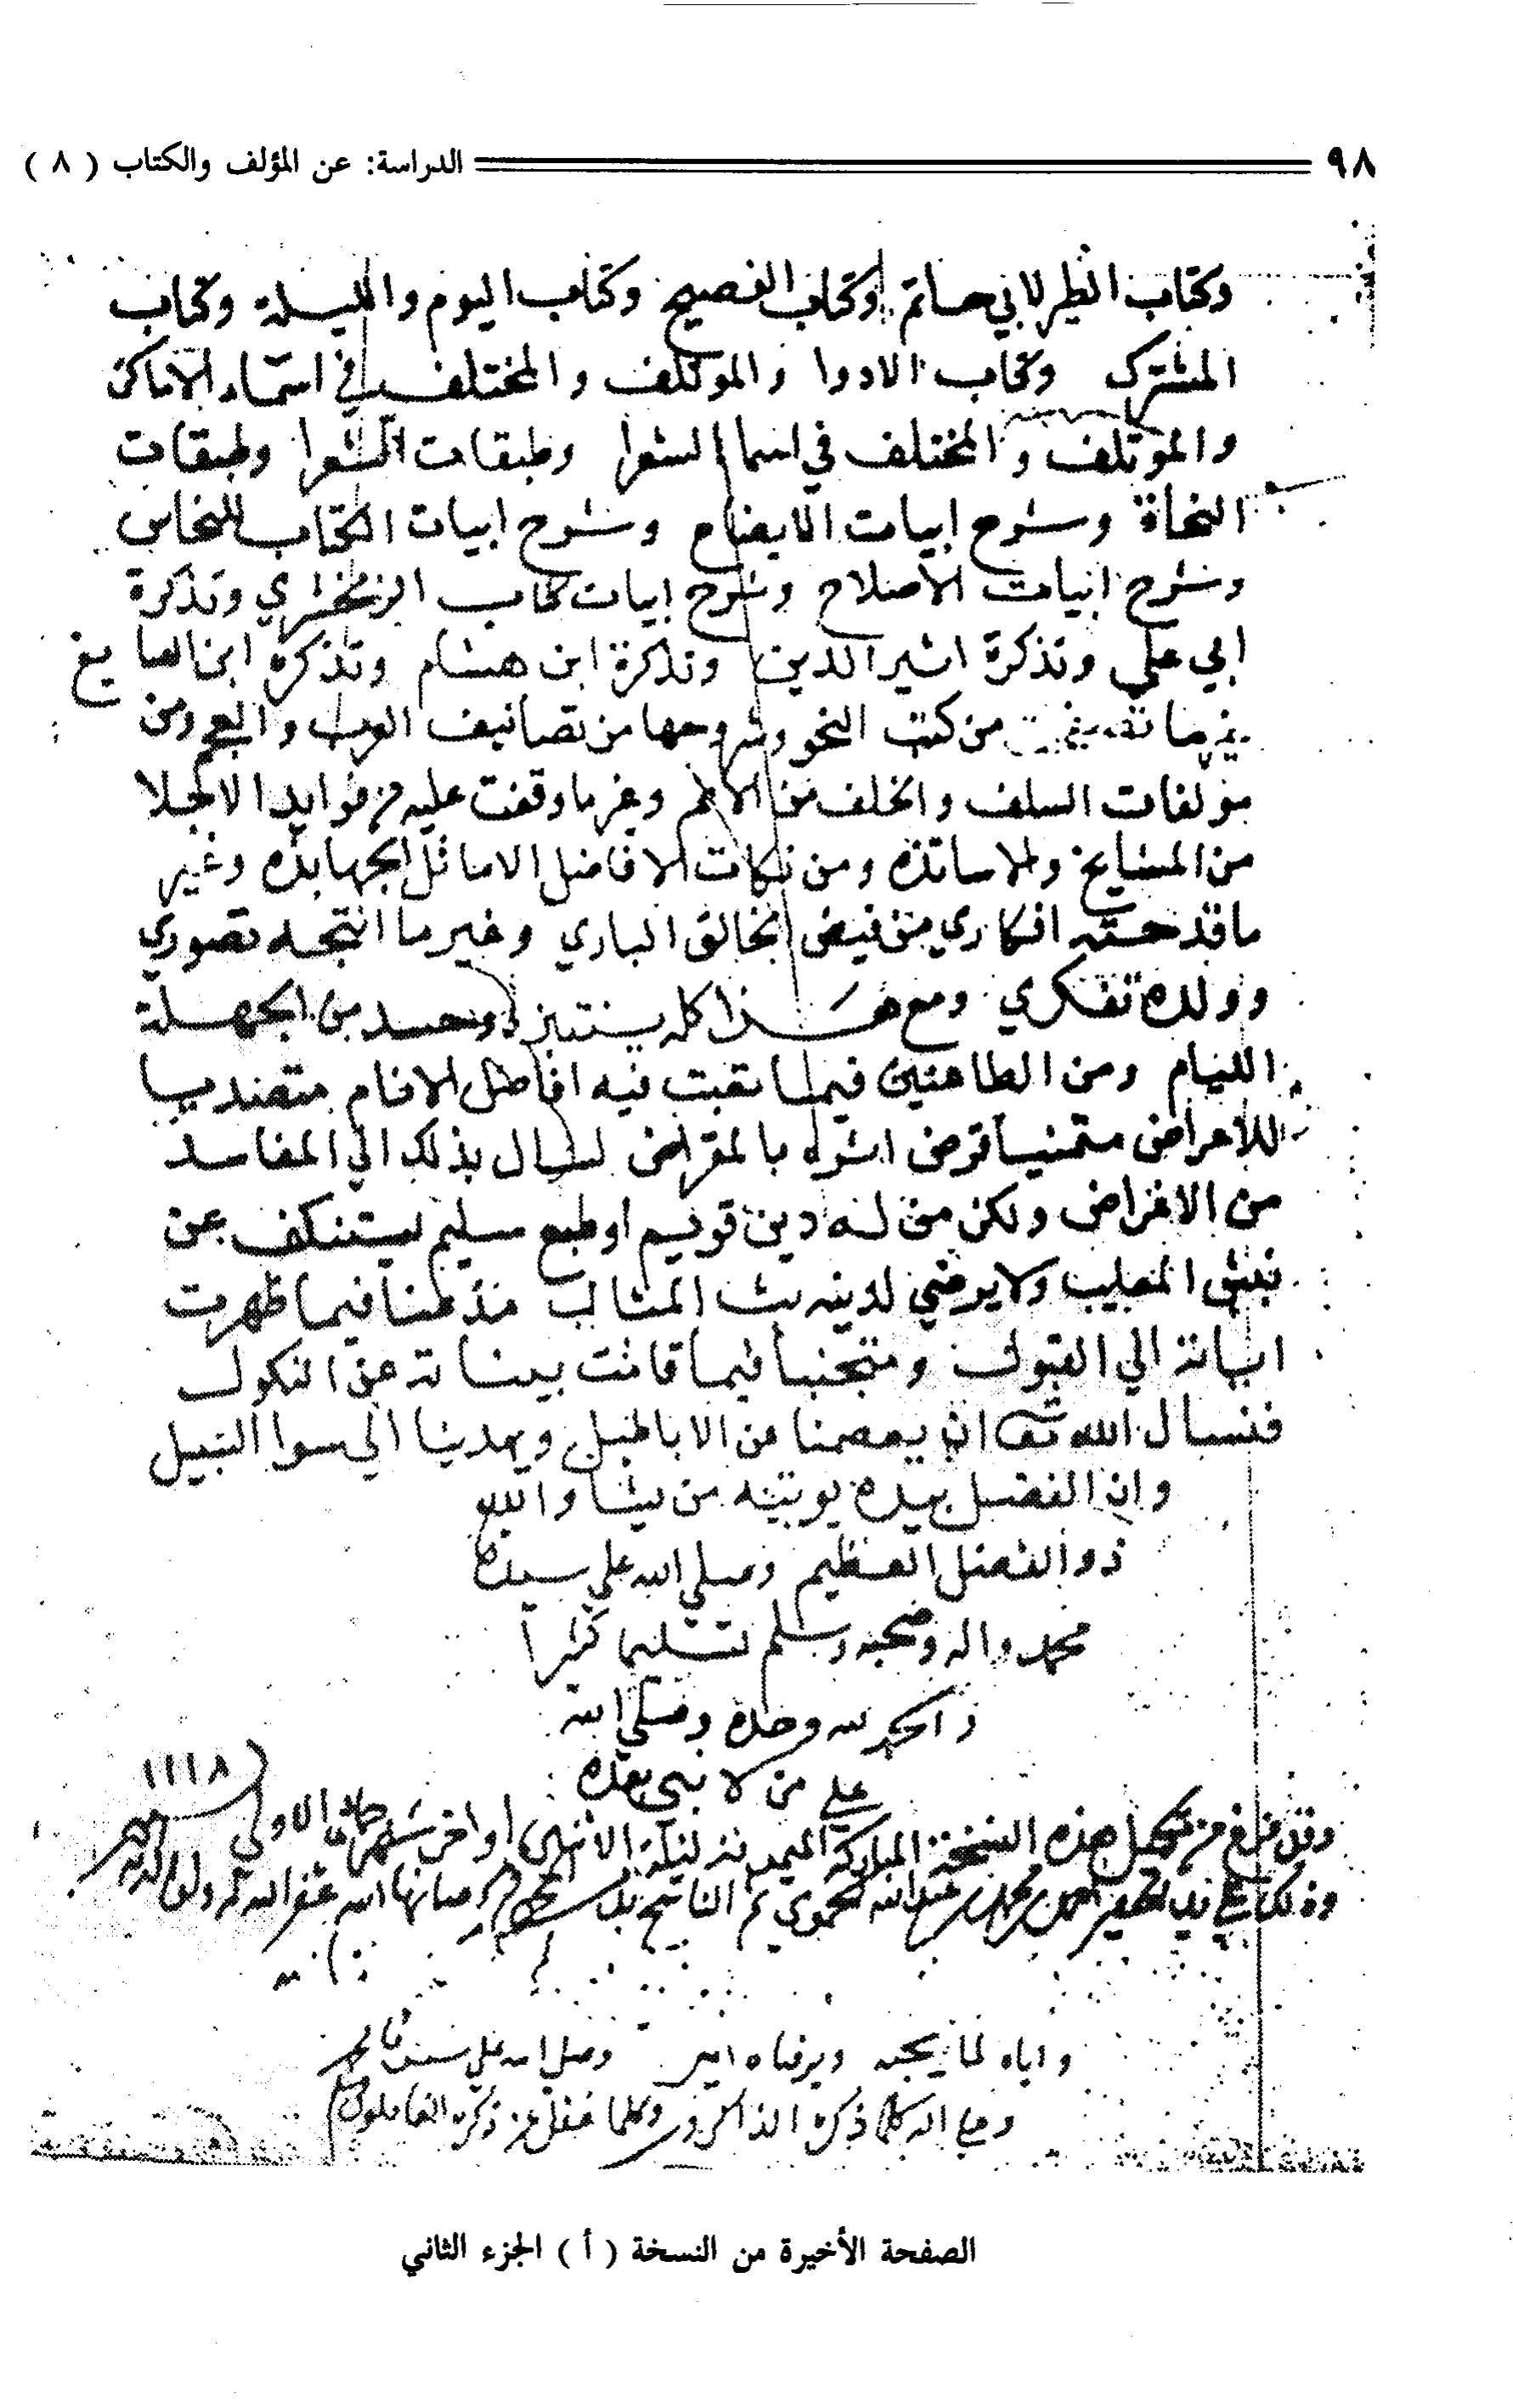 ٩٨ الدراسة: عن المؤلف والكتاب ( ٨ )
وكتاب الطير لابي حاتم وكتاب الفصيح وكتاب اليوم والليلة وكتاب
المشترك وكتاب الادوا والموتلف والمختلف في اسماء الاماكن
والموتلف والمختلف في اسما الشعرا وطبقات الشعرا وطبقات
النحاة وشرح ابيات الايضاح وشرح ابيات الكتاب للنحاس
وشرح ابيات الاصلاح وشرح ابيات كتاب الزمخشري وتذكرة
ابي علي وتذكرة اثير الدين وتذكرة ابن هشام وتذكره ابن الصايغ
من كتب النحو وشروحها من تصانيف العرب والعجم ومن
مولفات السلف والخلف من الامم وغير ما وقفت عليه من فوايد الاجلا
من المشايخ والاساتذه ومن نكات الافاضل الاماثل الجهابذه وغير
ما قدحته افكاري من فيض الخالق الباري وغير ما انتجه تصوري
وولده تفكري ومع هذا كله ينتبز ذو حسد من الجهلة
الليام ومن الطاعنين فيما تعبت فيه افاضل الانام متصديا
للاعراض متمنيا قرض اشره بالمقراض لينال بذلك الي المفاسد
من الاغراض ولكن من له دين قويم او طبع سليم يستنكف عن
نبش المعايب ولا يرضي لدينه بث المثالب مذعنا فيما ظهرت
اياته الي القبول ومتجنبا فيما قامت بيناته عن النكول
فنسال الله تعالى ان يعصمنا عن الاباطيل ويهدينا الي سوا السبيل
وان الفضل بيده يوتيه من يشا والله
ذو الفضل العظيم وصلي الله علي سيدنا
محمد واله وصحبه وسلم تسليما كثيرا
والحمد لله وحده وصلي الله
علي من لا نبي بعده
١١١٨
وقد فرغ من تكميل هذه النسخة المباركة الميمونة ليلة الاثنين اواخر شهر جماد الاولي
وذلك علي يد الحقير احمد بن محمد بن عبد الله الحموي ثم صانها الله غفر الله له ولوالديه
واياه لما يحبه ويرضاه امين وصلى الله علي سيدنا محمد
وعلي اله كلما ذكره الذاكرون وكلما غفل عن ذكره الغافلون
الصفحة الأخيرة من النسخة ( أ ) الجزء الثاني